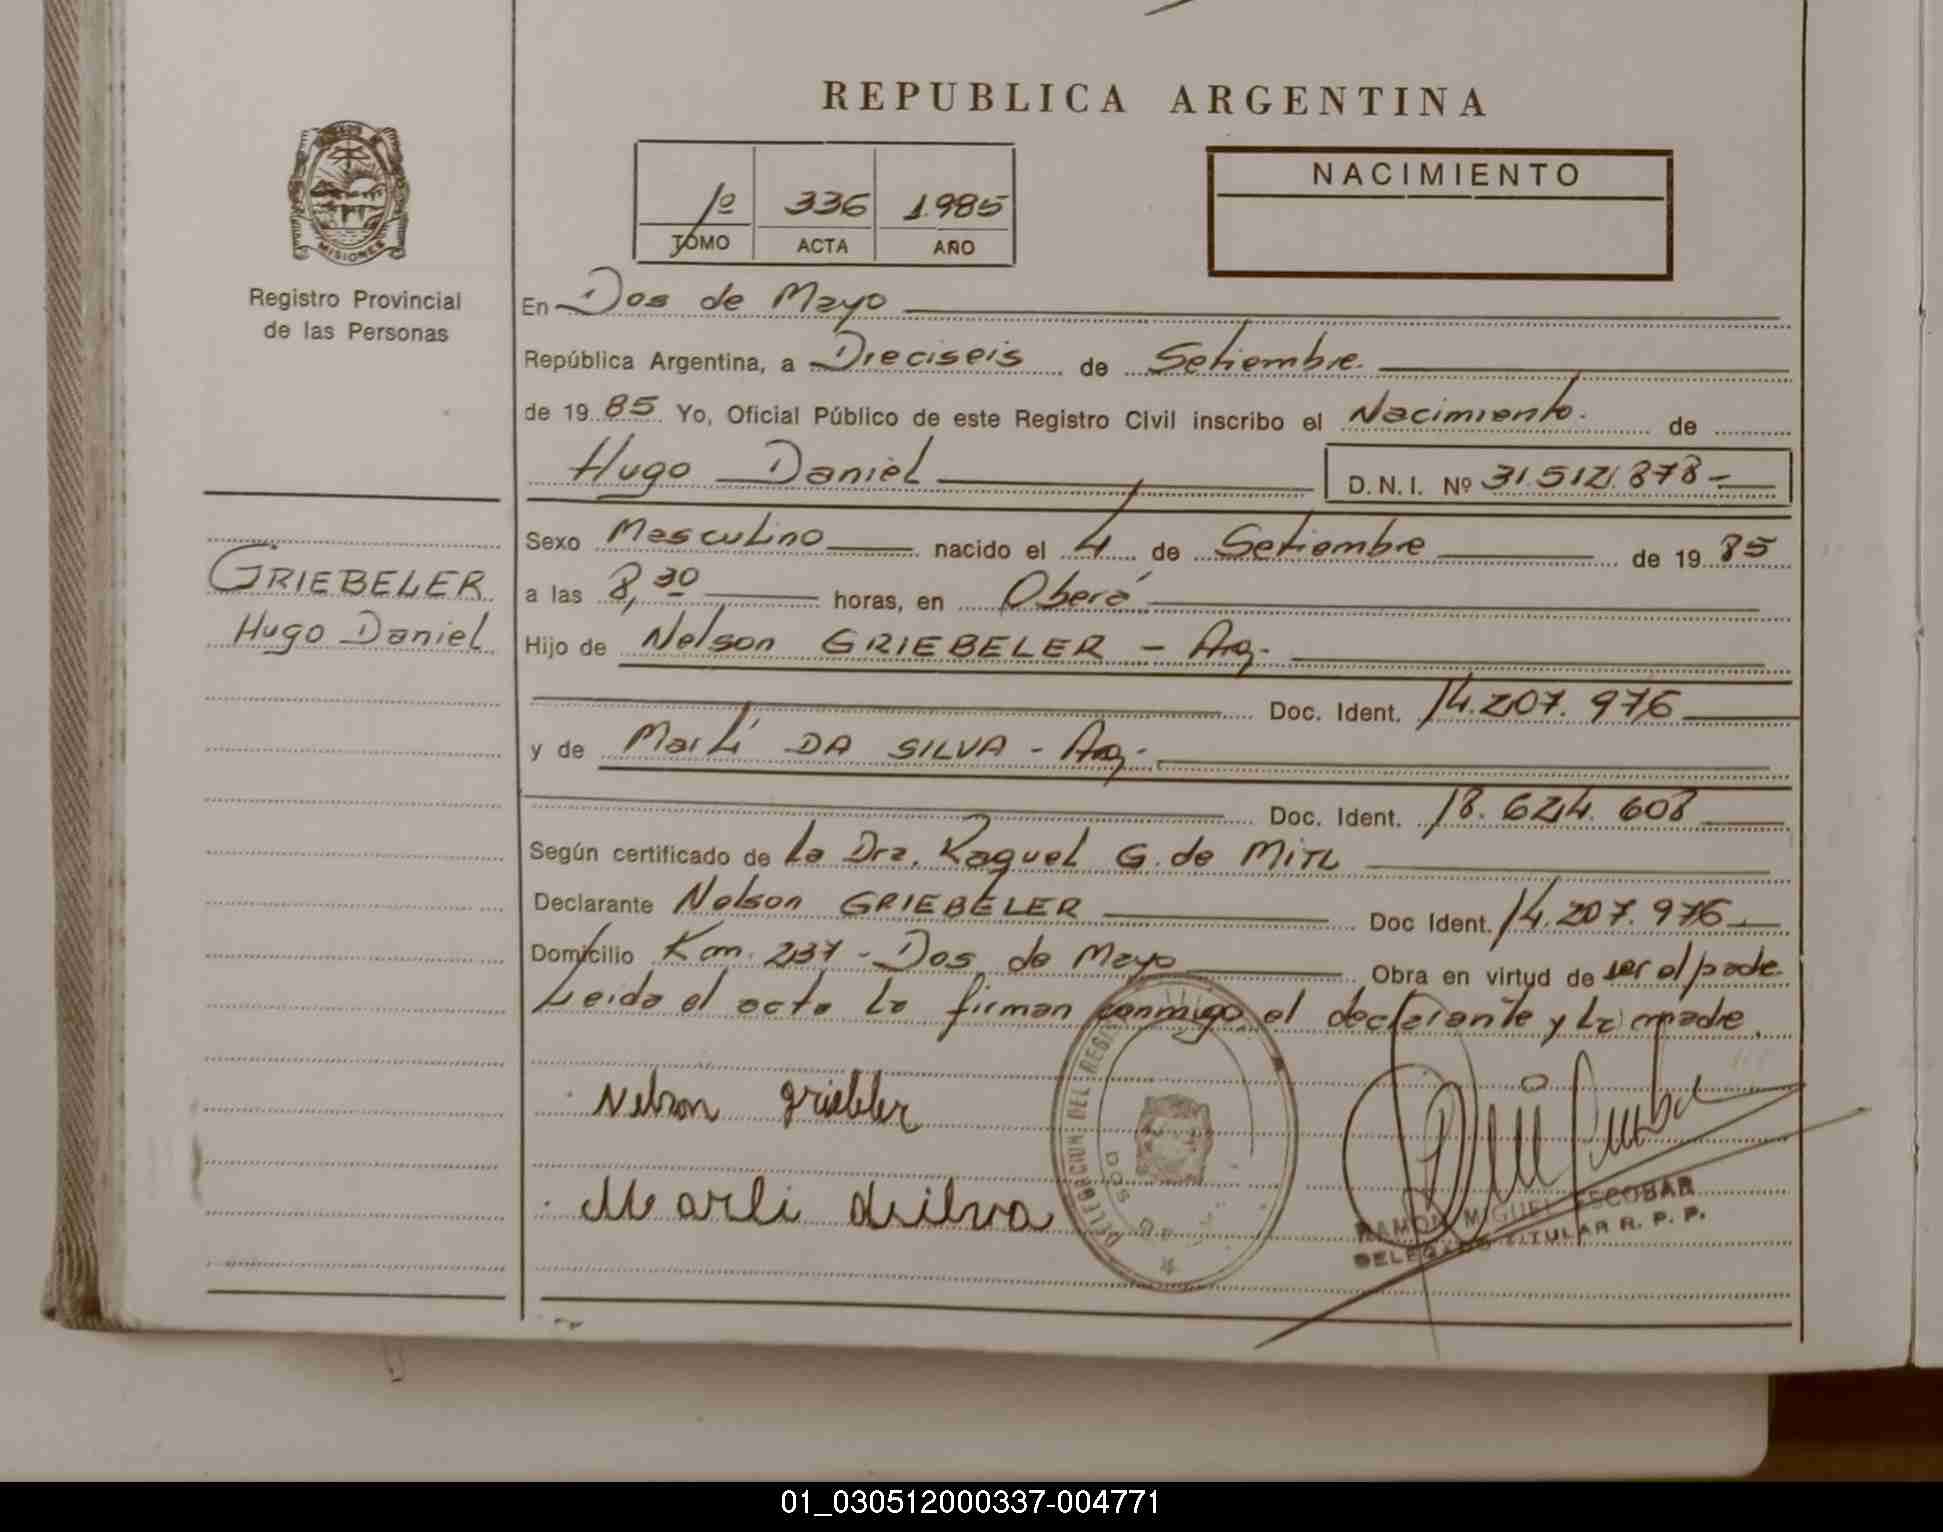 REPUBLICA ARGENTINA
MISIONES
Registro Provincial
de las Personas
1º 336 1985
TOMO ACTA AÑO
NACIMIENTO
En Dos de Mayo
República Argentina, a Dieciseis de Setiembre
de 19 85 Yo, Oficial Público de este Registro Civil inscribo el Nacimiento. de
Hugo Daniel D.N.I. Nº 31.512.878-
GRIEBELER
Hugo Daniel
Sexo Masculino nacido el 4 de Setiembre de 19 85
a las 8,30 horas, en Oberá
Hijo de Nelson GRIEBELER - Arg.
Doc. Ident. 14.207.976
y de Marlí DA SILVA - Arg.
Doc. Ident. 18.624.608
Según certificado de la Dra. Raquel G. de
Declarante Nelson GRIEBELER Doc Ident. 14.207.976
Domicilio Km. 237 - Dos de Mayo Obra en virtud de ser el padre.
Leida el acta la firman conmigo el declarante y la madre.
Nelson Griebeler
Marli
DELEGACION DEL REGI
DOS DE
RAMON MIGUEL ESCOBAR
DELEGADO TITULAR R. P. P.
01_030512000337-004771